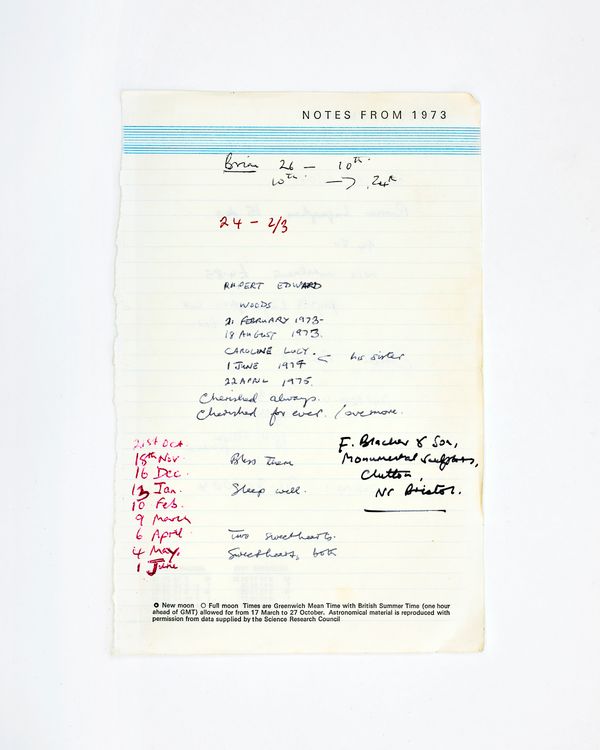 NOTES FROM 1973
Brian 26 — 10th.
10th. → 24th
24 – 2/3
RUPERT EDWARD
WOODS
21 FEBRUARY 1973–
18 AUGUST 1973.
CAROLINE LUCY. his sister
1 JUNE 1974
22 APRIL 1975.
Cherished always.
Cherished for ever. /evermore.
21st Oct.
18th Nov.
16 Dec.
13 Jan.
10 Feb.
9 March
6 April
4 May,
1 June
Bless them
Sleep well.
Two sweethearts.
Sweethearts, both
F. Blacker & Son,
Monumental Sculptors,
Clutton,
Nr Bristol.
New moon Full moon Times are Greenwich Mean Time with British Summer Time (one hour
ahead of GMT) allowed for from 17 March to 27 October. Astronomical material is reproduced with
permission from data supplied by the Science Research Council